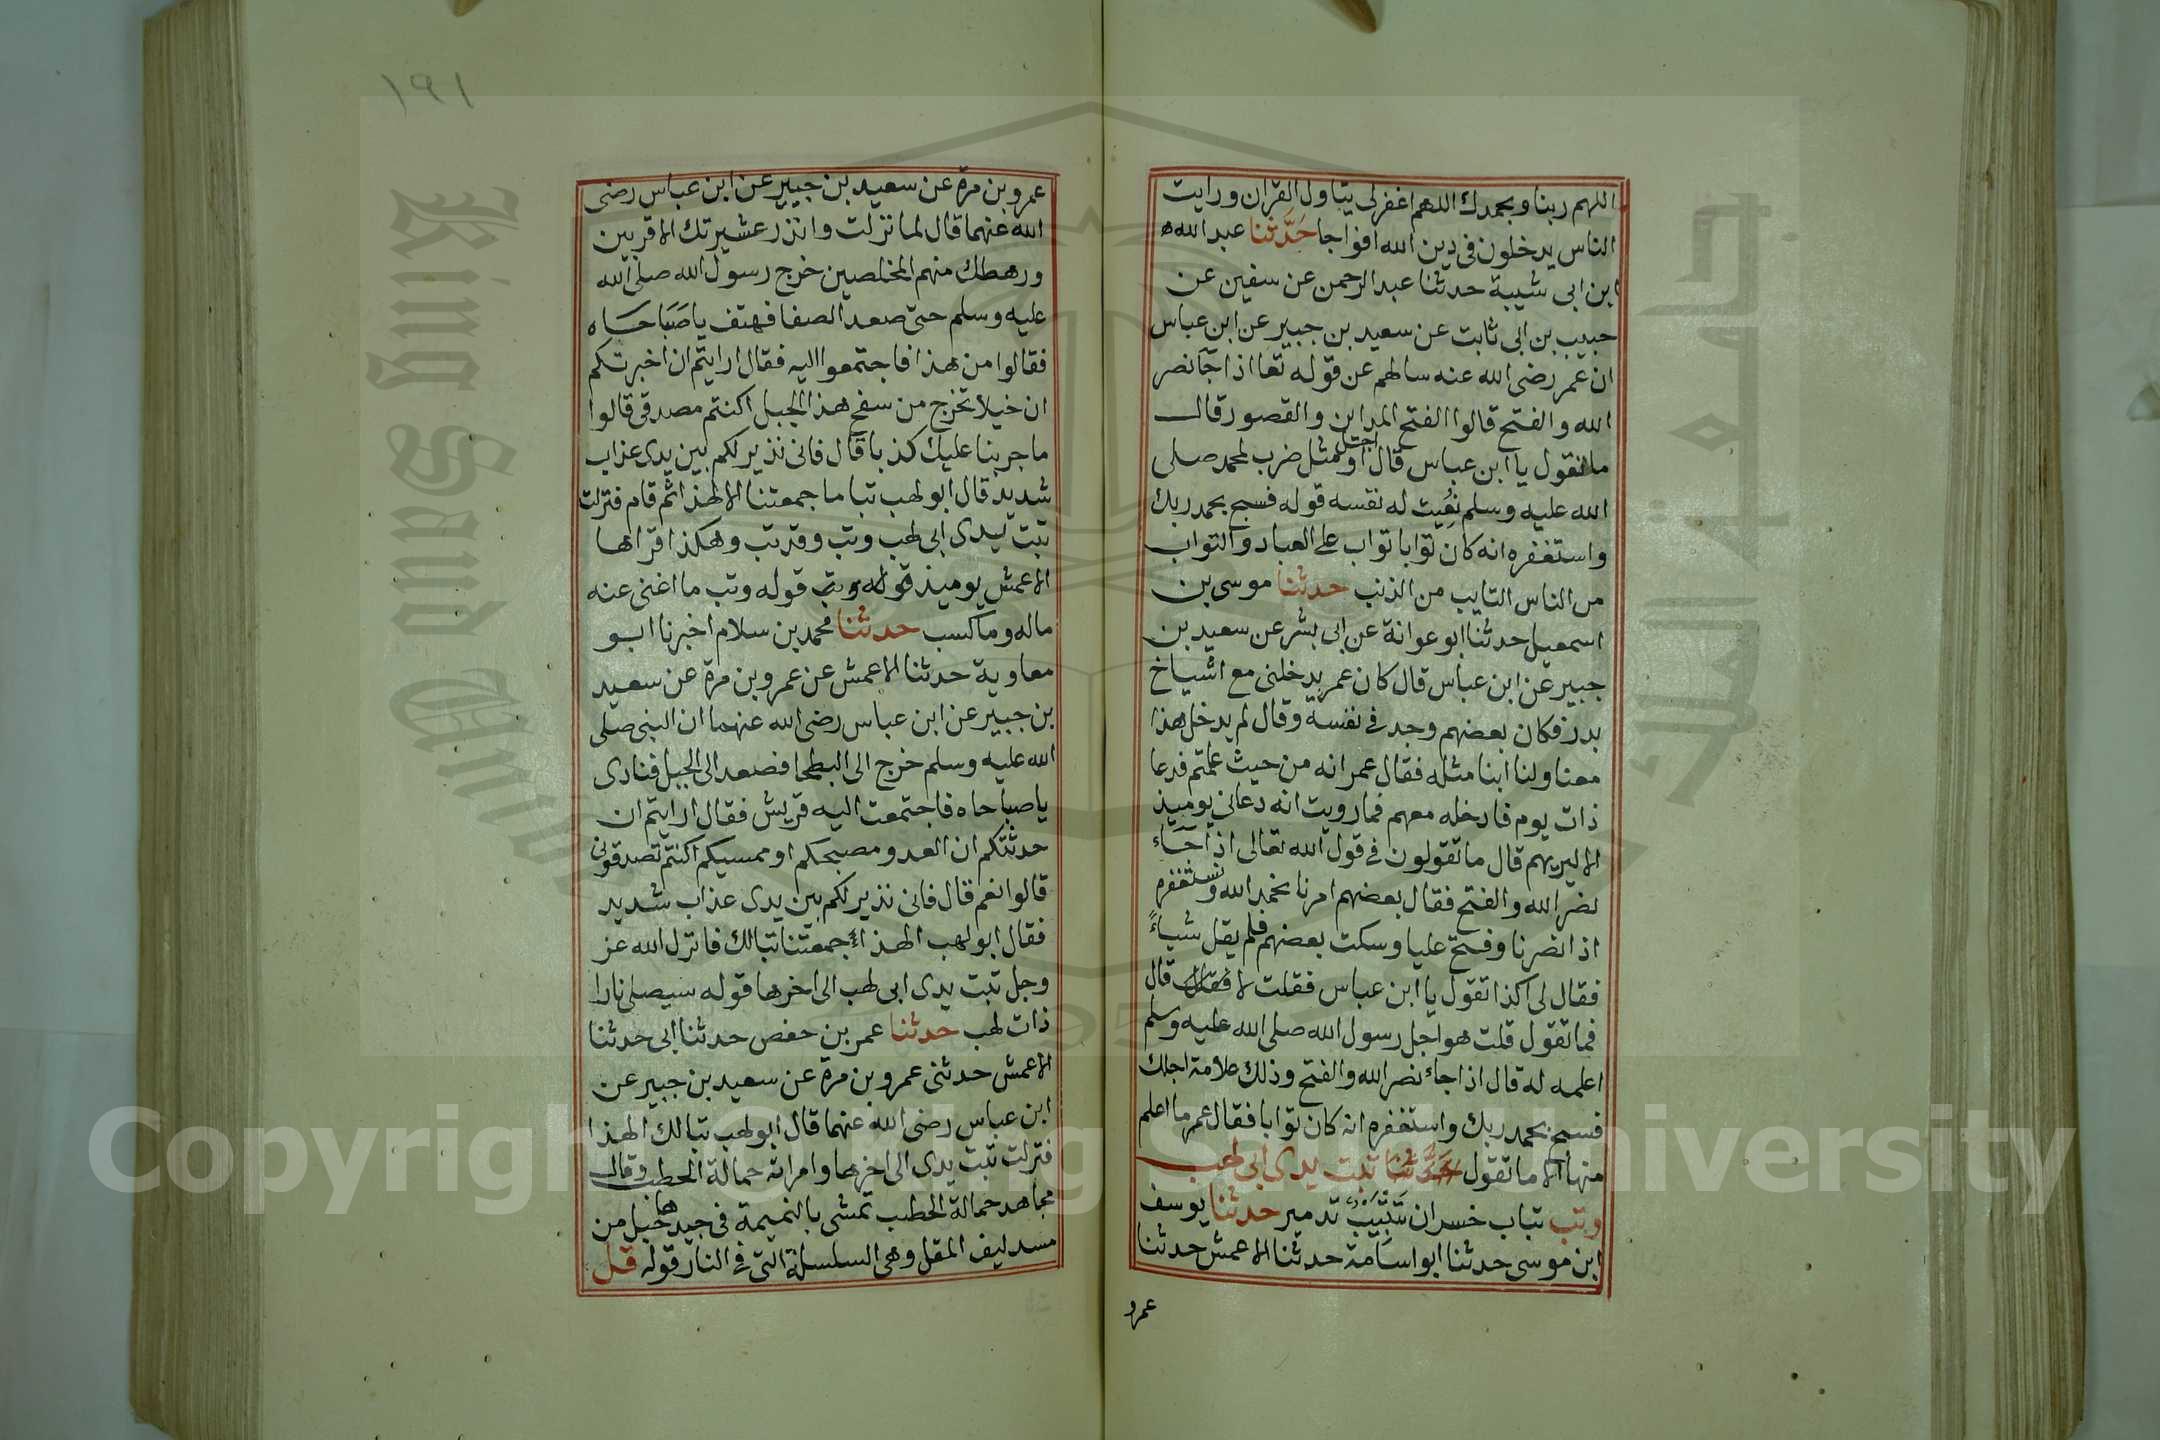 اللهم ربنا وبحمدك اللهم اغفرلى يتاول القران ورايت
الناس يدخلون فى دين الله افواجا حَدَّثنا عبد الله
ابن ابى شيبة حدثنا عبد الرحمن عن سفين عن
حبيب بن ابى ثابت عن سعيد بن جبير عن ابن عباس
ان عمر رضى الله عنه سالهم عن قوله تعا اذا جآ نصر
الله والفتح قالوا الفتح المداين والقصور قال
ما تقول يا ابن عباس قال اجل او مثل ضرب لمحمد صلى
الله عليه وسلم نعيت له نفسه قوله فسبح بحمد ربك
واستغفره انه كان توابا تواب على العباد والتواب
من الناس التايب من الذنب حدثنا موسى بن
اسمعيل حدثنا ابو عوانة عن ابى بشر عن سعيد بن
جبير عن ابن عباس قال كان عمر يدخلنى مع اشياخ
بدر فكان بعضهم وجد فى نفسه وقال لم يدخل هذا
معنا ولنا ابنا مثله فقال عمر انه من حيث علمتم فدعا
ذات يوم فادخله معهم فما رويت انه دعانى يوميذ
الا ليريهم قال ما تقولون فى قول الله تعالى اذا جاء
نصر الله والفتح فقال بعضهم امرنا نحمد الله ونستغفره
اذا نصرنا وفتح عليا وسكت بعضهم فلم يقل شياءً
فقال لى اكذا تقول يا ابن عباس فقلت لا قال
فما تقول قلت هو اجل رسول الله صلى الله عليه وسلم
اعلمه له قال اذا جاء نصر الله والفتح وذلك علامة اجلك
فسبح بحمد ربك واستغفره انه كان توابا فقال عمر ما اعلم
منها الا ما تقول تبت يدى ابى لهب
وتب تباب خسران تتبيب تدمير حدثنا يوسف
ابن موسى حدثنا ابو اسامة حدثنا الاعمش حدثنا
عمرو
١٩١
عمرو بن مرة عن سعيد بن جبير عن ابن عباس رضى
الله عنهما قال لما نزلت وانذر عشيرتك الاقربين
ورهطك منهم المخلصين خرج رسول الله صلى الله
عليه وسلم حتى صعد الصفا فهتف يا صَبَاحَاه
فقالوا من هذا فاجتمعوا اليه فقال ارايتم ان اخبرتكم
ان خيلا تخرج من سفح هذا الجبل اكنتم مصدقى قالوا
ما جربنا عليك كذبا قال فانى نذير لكم بين يدى عذاب
شديد قال ابو لهب تبا ما جمعتنا الا لهذا ثم قام فنزلت
تبت يدى ابى لهب وتب وقد تب وهكذا قراها
الاعمش يوميذ قوله وتب قوله وتب ما اغنى عنه
ماله وما كسب حدثنا محمد بن سلام اخبرنا ابو
معاوية حدثنا الاعمش عن عمرو بن مرة عن سعيد
بن جبير عن ابن عباس رضى الله عنهما ان النبى صلى
الله عليه وسلم خرج الى البطحا فصعد الى الجبل فنادى
يا صباحاه فاجتمعت اليه قريش فقال ارايتم ان
حدثتكم ان العدو مصبحكم او ممسيكم اكنتم تصدقونى
قالوا نعم قال فانى نذير لكم بين يدى عذاب شديد
فقال ابو لهب الهذا جمعتنا تبا لك فانزل الله عز
وجل تبت يدى ابى لهب الى اخرها قوله سيصلى نارا
ذات لهب حدثنا عمر بن حفص حدثنا ابى حدثنا
الاعمش حدثنى عمرو بن مرة عن سعيد بن جبير عن
ابن عباس رضى الله عنهما قال ابو لهب تبا لك الهذا
فنزلت تبت يدى الى اخرها وامراته حمالة الحطب وقال
مجاهد حمالة الحطب تمشى بالنميمة فى جيدها حبل من
مسد ليف المقل وهى السلسلة التى فى النار قوله قل
King Saud
Copyright © King Saud University
جامعة الملك